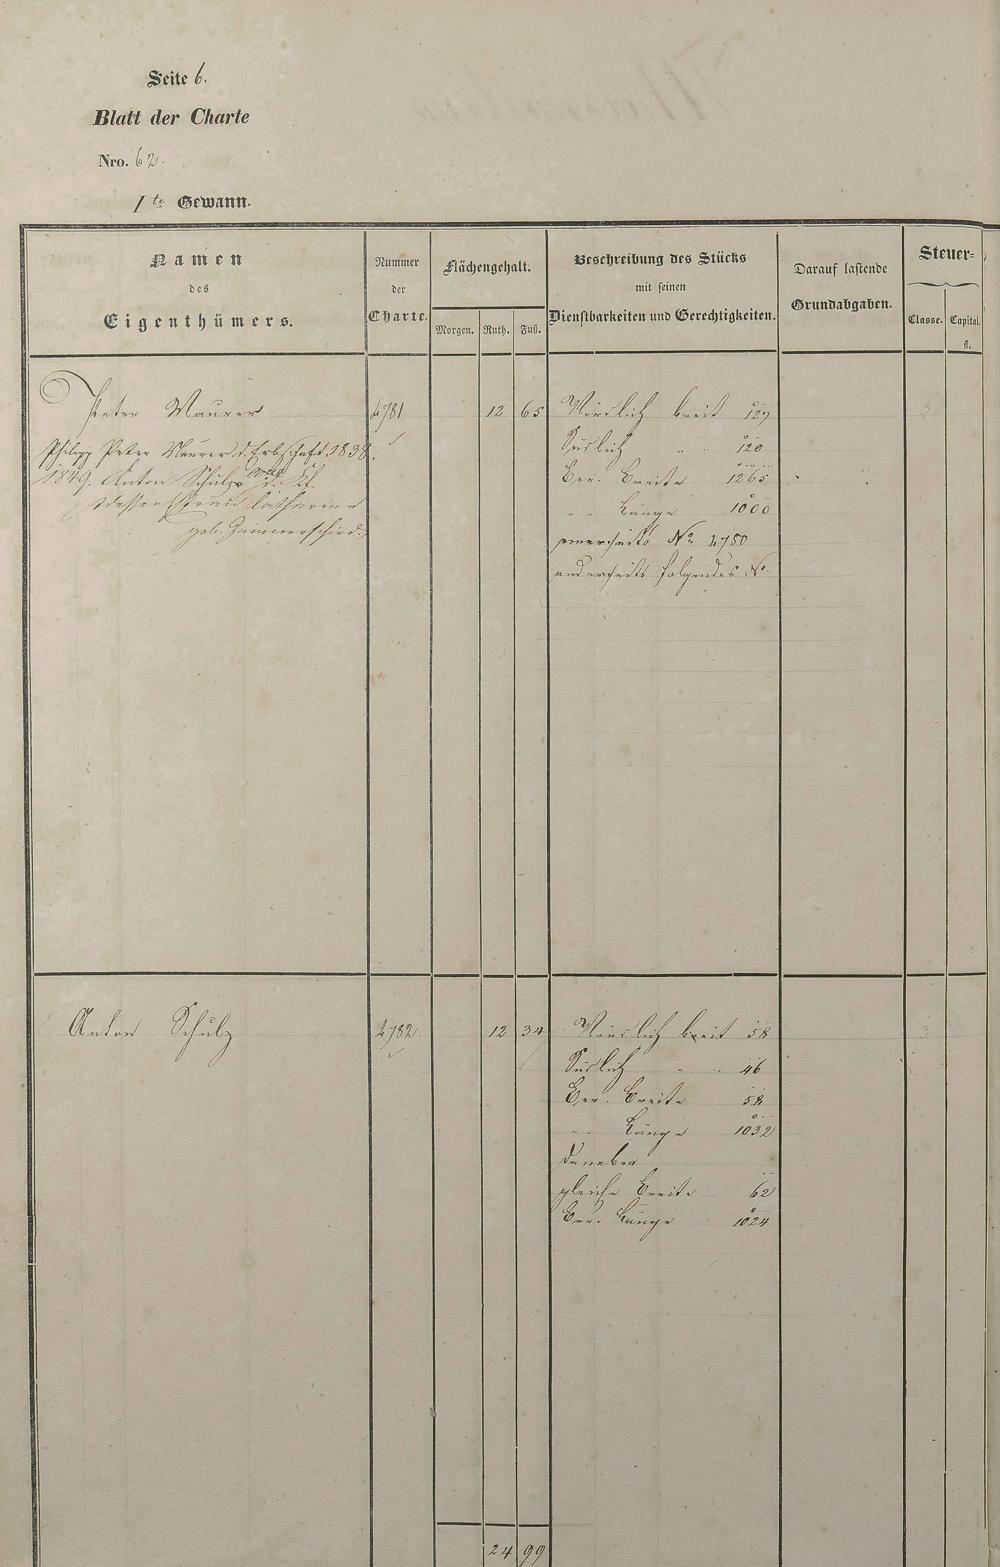 Seite 6.
Blatt der Charte
Nro. 62.
1te Gewann.
Namen
des
Eigenthümers.
Nummer
der
Charte.
Flächengehalt.
Morgen. Ruth. Fuß.
Beschreibung des Stücks
mit seinen
Dienstbarkeiten und Gerechtigkeiten.
Darauf lastende
Grundabgaben.
Steuer-
Classe. Capital.
fl.
Peter Maurer 4781 12 65 Nördlich breit 127
Philipp Peter Maurer d. Erbschaft 1838.
Südlich " " 120
1849. Anton Schulz d. Kf.
Ber. Breite 1265
dessen Ehefrau Catharina
"- Länge 1000
geb. Zimmerschied
einerseits No. 4780
anderseits folgendes No.
Anton Schulz 4782. 12 34 Nördlich breit 58
Südlich " " 46
Ber. Breite 58
"- Länge 1032
Daneben
gleiche Breite 62
Ber. Länge 1024
24 99